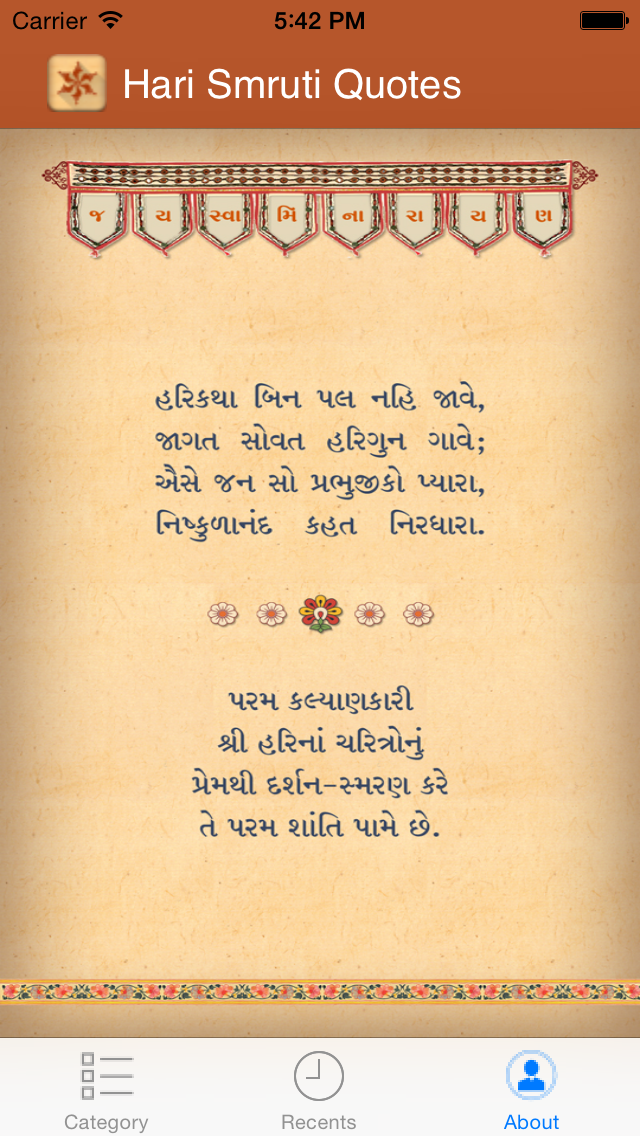 Carrier 5:42 PM
Hari Smruti Quotes
જ ય સ્વા મિ ના રા ય ણ
હરિકથા બિન પલ નહિ જાવે,
જાગત સોવત હરિગુન ગાવે;
ઐસે જન સો પ્રભુજીકો પ્યારા,
નિષ્કુળાનંદ કહત નિરધારા.
પરમ કલ્યાણકારી
શ્રી હરિનાં ચરિત્રોનું
પ્રેમથી દર્શન-સ્મરણ કરે
તે પરમ શાંતિ પામે છે.
Category Recents About